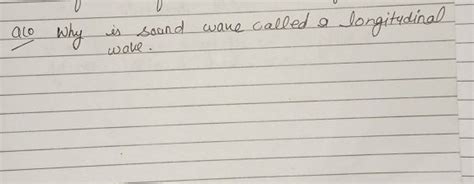 Q10 Why is sound wave called a longitudinal
wave.